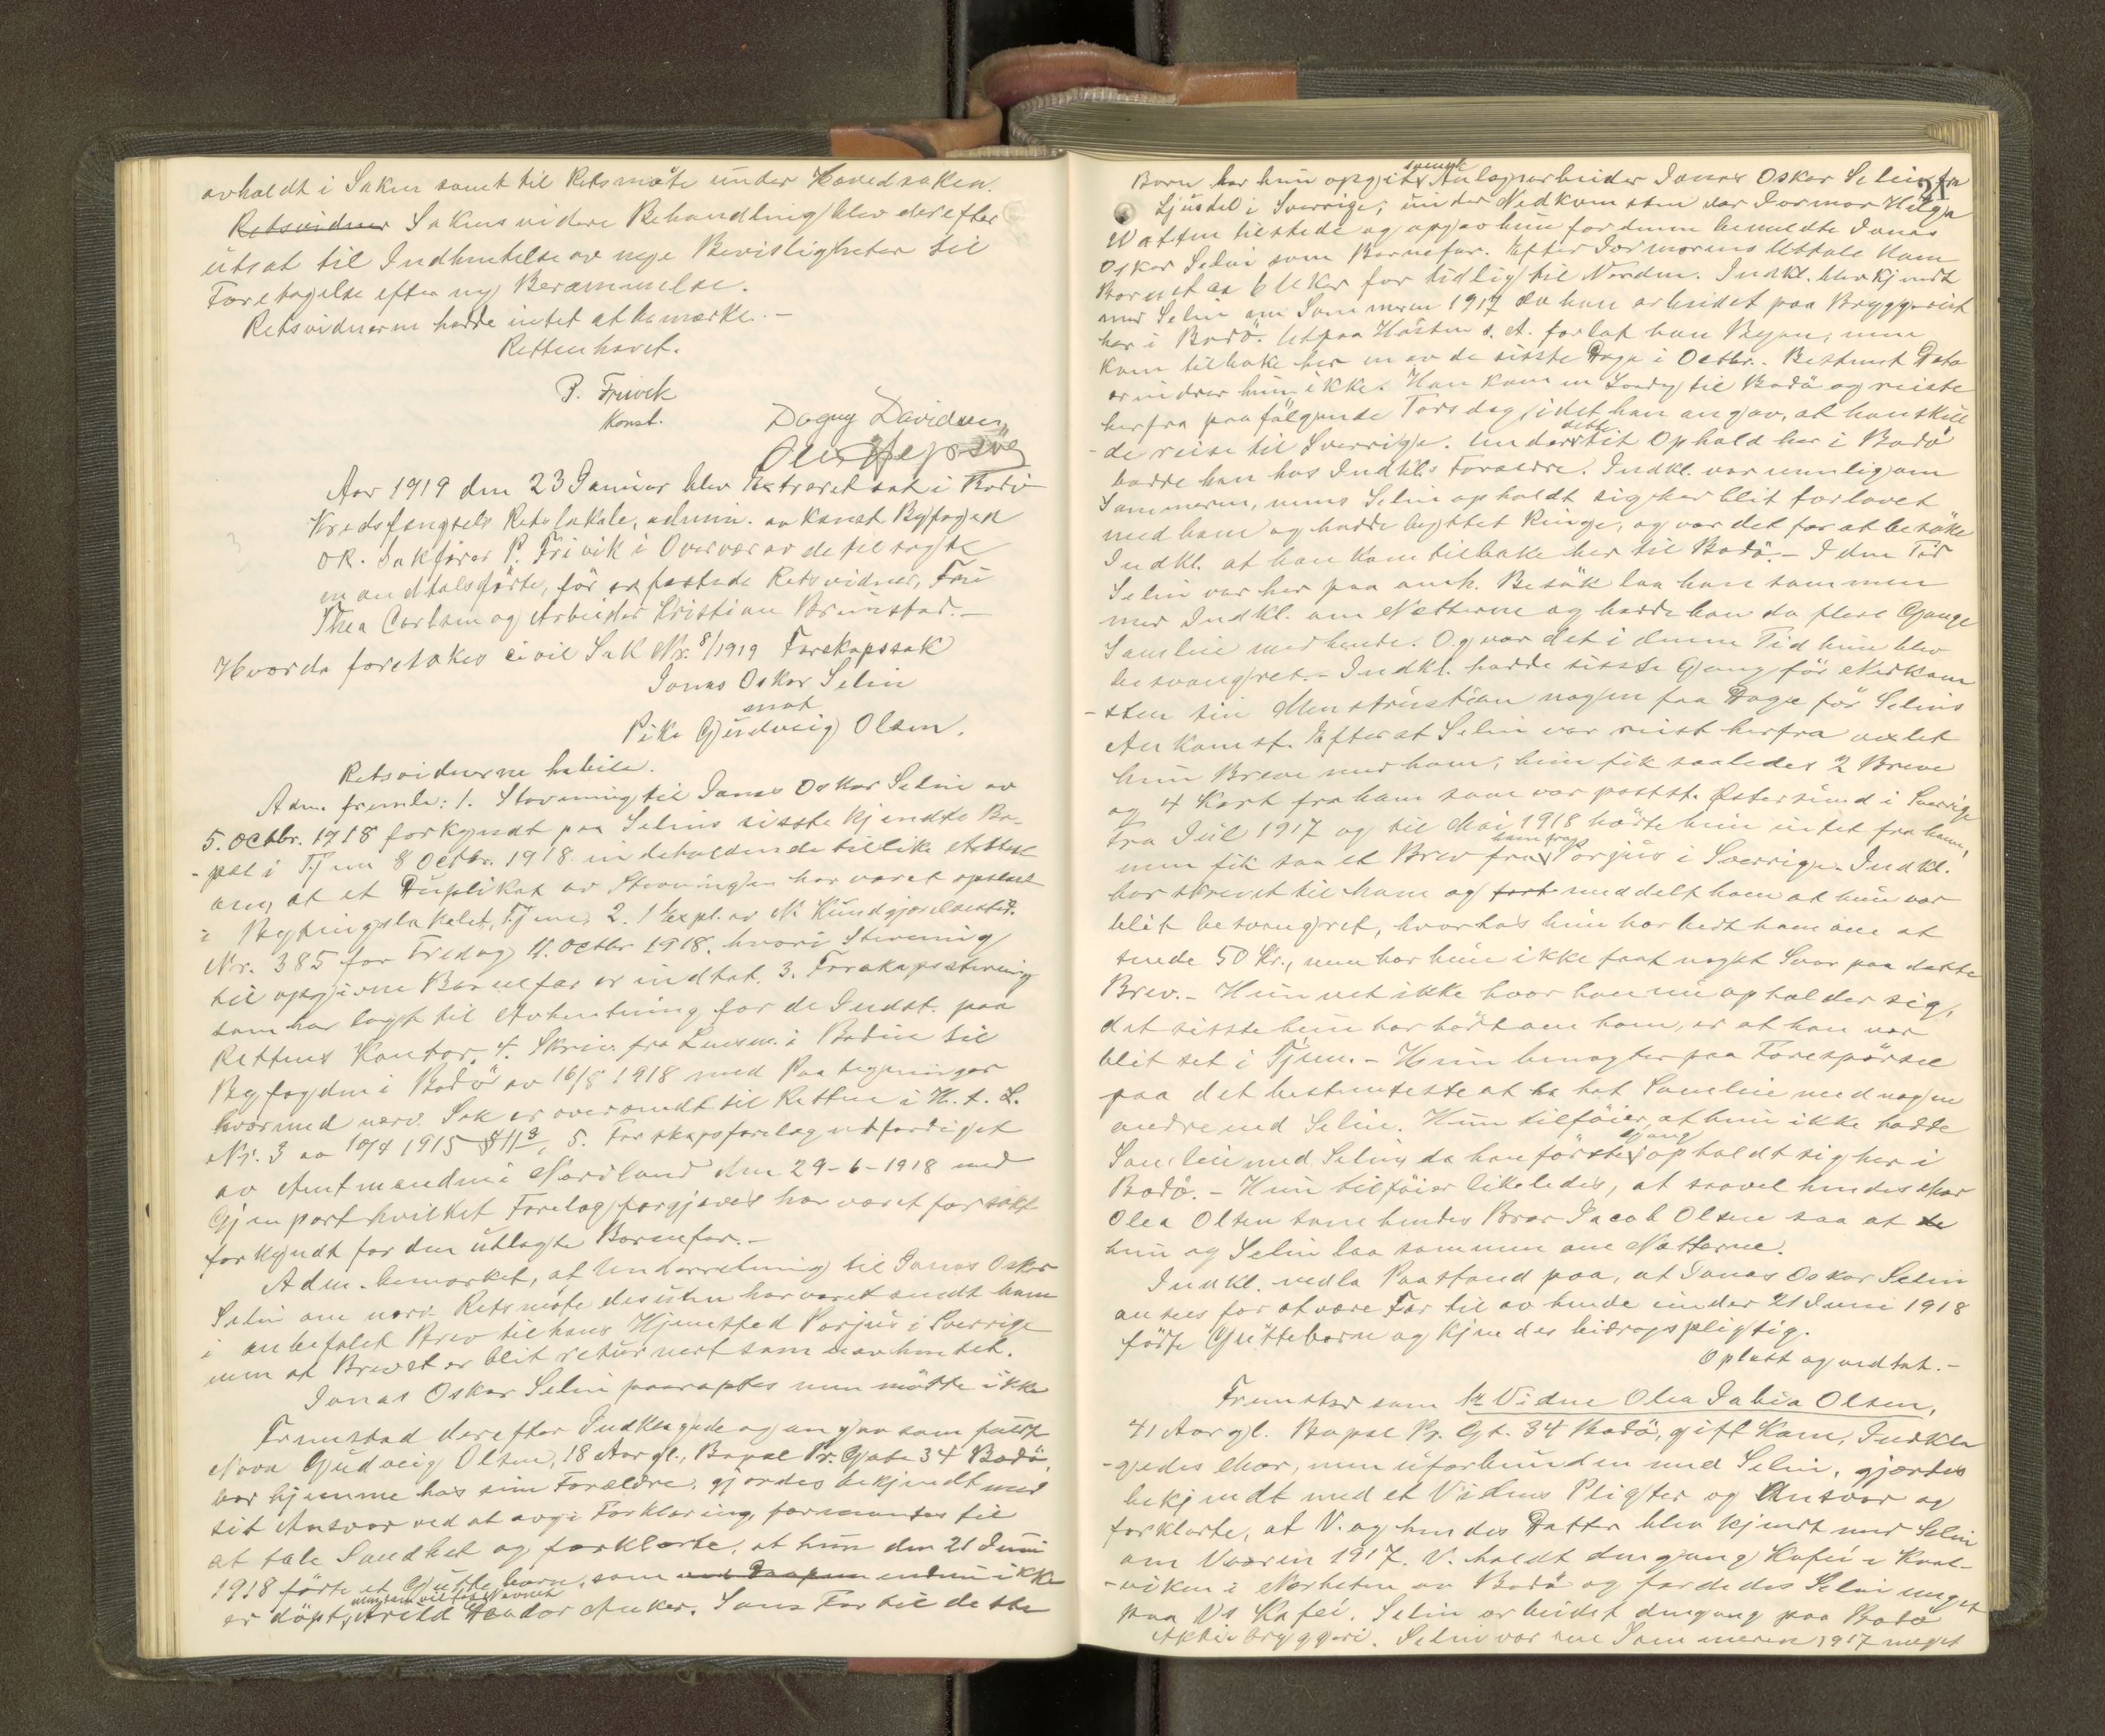 avholdt i Saken samt til Retsmøte under Hovedsaken.
Retsvidner Sakens videre Behandling blev derefter
utsat til Indhentelse av nye Bevisligheter til
Foretagelse efter ny Berammelse.
Retsvidnerne hadde intet at bemerke. -
Retten hævet.
P. Frivik
Konst.
Dagny Davidsen
Aar 1919 den 23 Januar blev Extraret sat i Bodö
Kredsfængsels Retslokale, admin. av konst. Byfoged
OR. Sakförer P. Frivik i Overvær av de tilsagte
mandtalsförte, för edfæstede Retsvidner, Fru
Thea Carlsen og Arbeider Kristian Brunstad. -
Hvorda foretokes civil Sak Nr. 8/1919 Farskapssak
Jonas Oskar Selin
mot
Pike Gudveig Olsen.
Retsvidnerne habile.
Adm. fremla: 1. Stevning til Jonas Oskar Selin av
5. Octbr. 1918 forkyndt paa Selins sisste kjendte Bo-
-pæl i Tjem 8 Octbr. 1918 indeholdende tillike Attest
om, at et Duplikat av Stevningen har været opslaat
i Bytingslokalet, Tjem, 2. 1 Expl. av N. Kundgjørelsestid.
Nr. 385 for Fredag 11. Octbr 1918. hvori Stevning
til opgivne Barnefar er indtat. 3. Farskapsstevning
som har lagt til Avhentning for de Indst. paa
Rettens Kontor. 4. Skriv. fra Lensm. i Bodin til
Byfogden i Bodö av 16/8 1918 med Paategninger
hvormed nærv. Sak er oversendt til Retten i H. t. L.
Nr. 3 av 10/4 1915 § 11 3, 5. Farskapsforelæg utfærdiget
av Amtmanden i Nordland den 29-6-1918 med
Gjenpart hvilket Forelæg forgjæves har været forsökt
forkyndt for den utlagte Barnefar. -
Adm. bemerket, at Underretning til Jonas Oskar
Selin om nærv. Retsmöte desuten har været sendt ham
i anbefalet Brev til hans Hjemsted Porjus i Sverrige
men at Brevet er blit returnert som uavhentet.
Jonas Oskar Selin paaroptes men mötte ikke
Fremstod derefter Indklagede og angav som fuldt
Navn Gudveig Olsen, 18 Aar gl., Bopæl Pr. Gate 34 Bodö,
bor hjemme hos sine Forældre, gjordes bekjendt med
sit Ansvar ved at avgi Forklaring, formantes til
at tale Sandhet og forklarte, at hun den 21 Juni
1918 födte et Guttebarn, som ved Daapen endnu ikke
er döpt, men som vil faa Navnet Arild Teodor Anker. Som Far til dette
Barn har hun opgit svensk Anlægsarbeider Jonas Oskar Selin fra
Ljusdal i Sverrige; under Nedkomsten var Jormor Helga
Watten tilstede og opgav hun for denne bemeldte Jonas
Oskar Selin som Barnefar. Efter Jormorens Uttale kom
Barnet ca 6 Uker for tidlig til Verden. Indkl. blev kjendt
med Selin om Sommeren 1917 da han arbeidet paa Bryggeriet
her i Bodö. Utpaa Hösten s. A. forlot han Byen; men
kom tilbake her en av de sisste Dage i Octbr.. Bestemt Dato
erindrer hun ikke. Han kom en Lördag til Bodö og reiste
herfra paafölgende Torsdag, idet han angav, at han skul
-de reise til Sverrige. Under dette sit Ophold her i Bodö
bodde han hos Indkl's Forældre. Indkl. var nemlig om
Sommeren, mens Selin opholdt sig her blit forlovet
med ham og hadde byttet Ringe, og var det for at besöke
Indkl. at han kom tilbake her til Bodö. - I den Tid
Selin var her paa omh. Besök laa han sammen
med Indkl. om Nætterne og hadde han da flere Gange
Samleie med hende. Og var det i denne Tid hun blev
besvangret. - Indkl. hadde sisste Gang för Nedkom
-sten sin Menstruation nogen faa Dage för Selins
Ankomst. Efter at Selin var reist herfra vexlet
hun Breve med ham; hun fik saaledes 2 Breve
og 4 Kort fra ham som var postst. Østersund i Sverrige
Fra Jul 1917 og til Mai 1918 hörte hun intet fra ham,
men fik saa et Brev fra ham fra Porjus i Sverrige. Indkl.
har skrevet til ham og fort meddelt ham at hun var
blit besvangret, hvorhos hun har bedt ham om at
sende 50 Kr., men har hun ikke faat noget Svar paa dette
Brev. - Hun vet ikke hvor han nu opholder sig,
det sisste hun har hört om ham, er at han var
blit set i Tjem. - Hun benegter paa Forespörsel
paa det bestemteste at ha hat Samleie med nogen
andre end Selin. Hun tilföier, at hun ikke hadde
Samleie med Selin da han förste Gang opholdt sig her i
Bodö. - Hun tilföier likeledes, at saavel hendes Mor
Olea Olsen som hendes Bror Jacob Olsen saa at de
hun og Selin laa sammen om Nætterne.
Indkl. nedla Paastand paa, at Jonas Oskar Selin
ansees for at være Far til av hende under 21 Juni 1918
födte Guttebarn og kjendes bidragspligtig.
Oplæst og vedtat. -
Fremstod som 1ste Vidne Olea Jakia Olsen,
41 Aar gl. Bopæl Pr. Gt. 34 Bodö, gift Kone, Indkla
-gedes Mor, men uforbunden med Selin, gjordes
bekjendt med et Vidnes Pligter og Ansvar og
forklarte, at V. og hendes Datter blev kjendt med Selin
om Vaaren 1917. V. holdt dengang Kafé i Kval-
-viken i Nærheten av Bodö og færdedes Selin meget
paa V's Kafé. Selin arbeidet dengang paa Bodö
Aktiebryggeri. Selin var om Sommeren 1917 meget